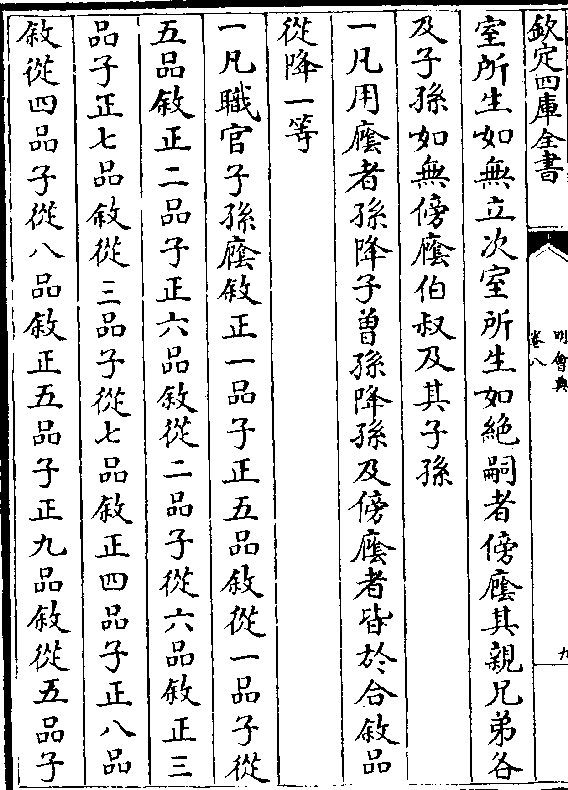 欽定四庫全書
明會典
卷八
九
室所生如無立次室所生如絶嗣者傍廕其親兄弟各
及子孫如無傍廕伯叔及其子孫
一凡用廕者孫降子曽孫降孫及傍廕者皆於合敘品
從降一等
一凡職官子孫廕敘正一品子正五品敘從一品子從
五品敘正二品子正六品敘從二品子從六品敘正三
品子正七品敘從三品子從七品敘正四品子正八品
敘從四品子從八品敘正五品子正九品敘從五品子